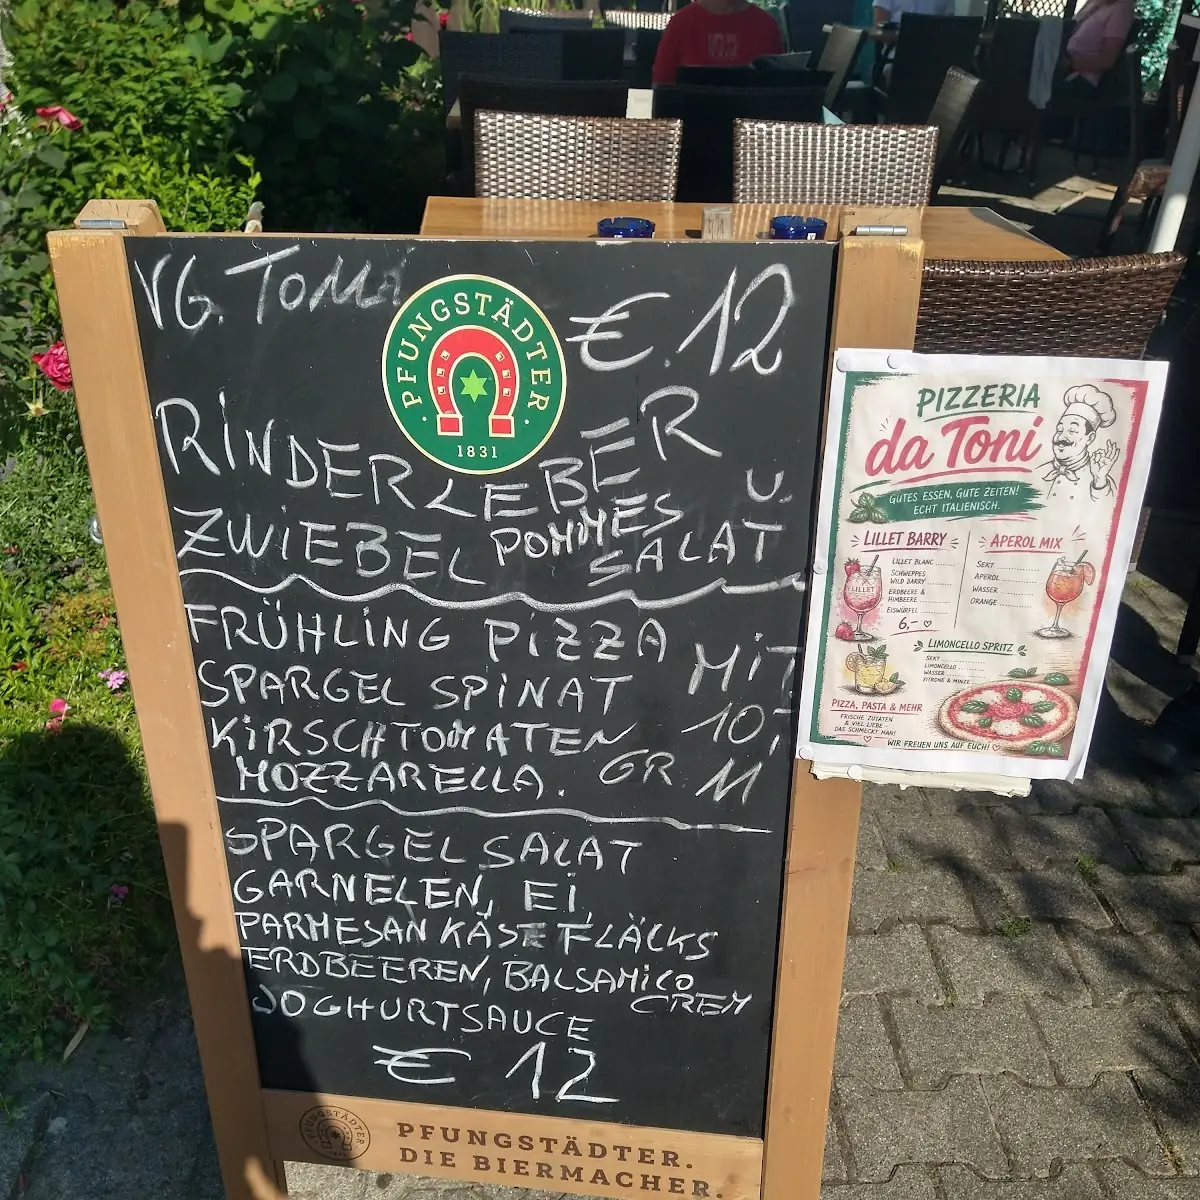 VG. TOMA
€. 12
PFUNGSTÄDTER
1831
RINDERLEBER
ZWIEBEL POMMES U.
SALAT
FRÜHLING PIZZA MIT
SPARGEL SPINAT
KIRSCHTOMATEN 10,-
MOZZARELLA. GR. 11
SPARGEL SALAT
GARNELEN, EI,
PARMESAN KÄSE FLÄCKS
ERDBEEREN, BALSAMICO
CREM
JOGHURTSAUCE
€ 12
PFUNGSTÄDTER.
DIE BIERMACHER.
PFUNGSTÄDTER
PIZZERIA
da Toni
GUTES ESSEN, GUTE ZEITEN!
ECHT ITALIENISCH.
LILLET BARRY
LILLET BLANC
SCHWEPPES
WILD BARRY
ERDBEERE &
HIMBEERE
EISWÜRFEL
6,-
LILLET
APEROL MIX
SEKT
APEROL
WASSER
ORANGE
LIMONCELLO SPRITZ
SEKT
LIMONCELLO
WASSER
ZITRONE & MINZE
PIZZA, PASTA & MEHR
FRISCHE ZUTATEN
& VIEL LIEBE -
DAS SCHMECKT MAN!
WIR FREUEN UNS AUF EUCH!